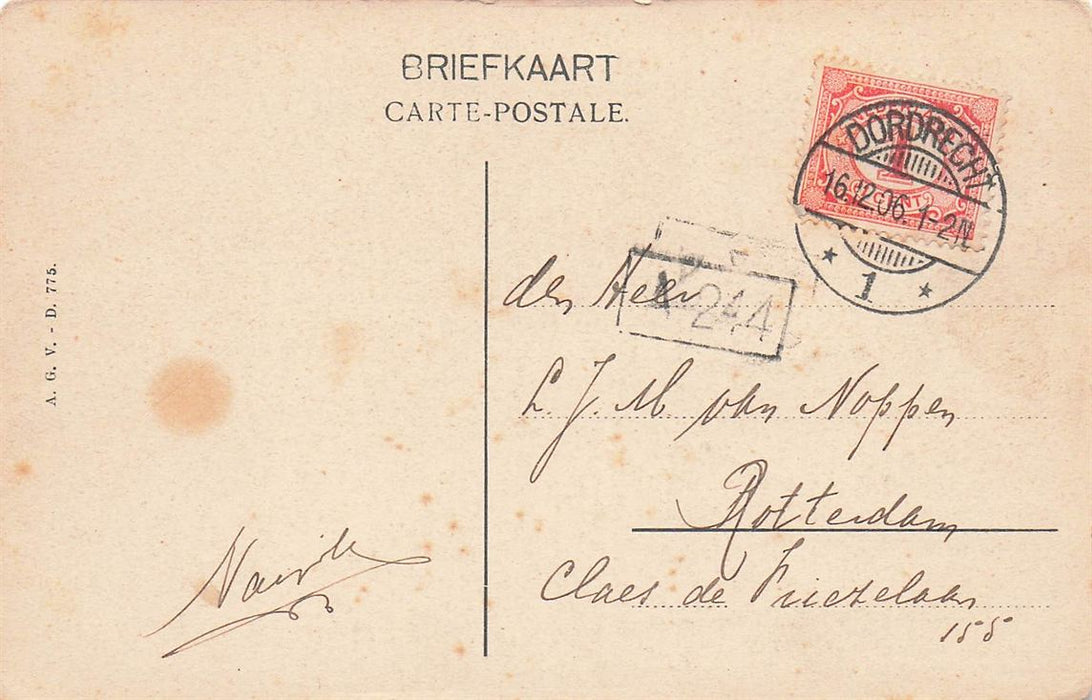 BRIEFKAART
CARTE-POSTALE.
DORDRECHT
16.12.06. 1-2N
1
1
CENT
A. G. V. - D. 775.
244
den Heer
L. J. M. van Noppen
Rotterdam
Claes de Friezelaan
155